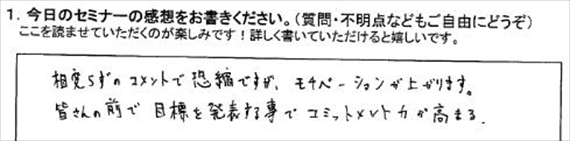 1. 今日のセミナーの感想をお書きください。(質問・不明点などもご自由にどうぞ)
ここを読ませていただくのが楽しみです!詳しく書いていただけると嬉しいです。
相変らずのコメントで恐縮ですが、モチベーションが上がります。
皆さんの前で目標を発表する事でコミットメント力が高まる.